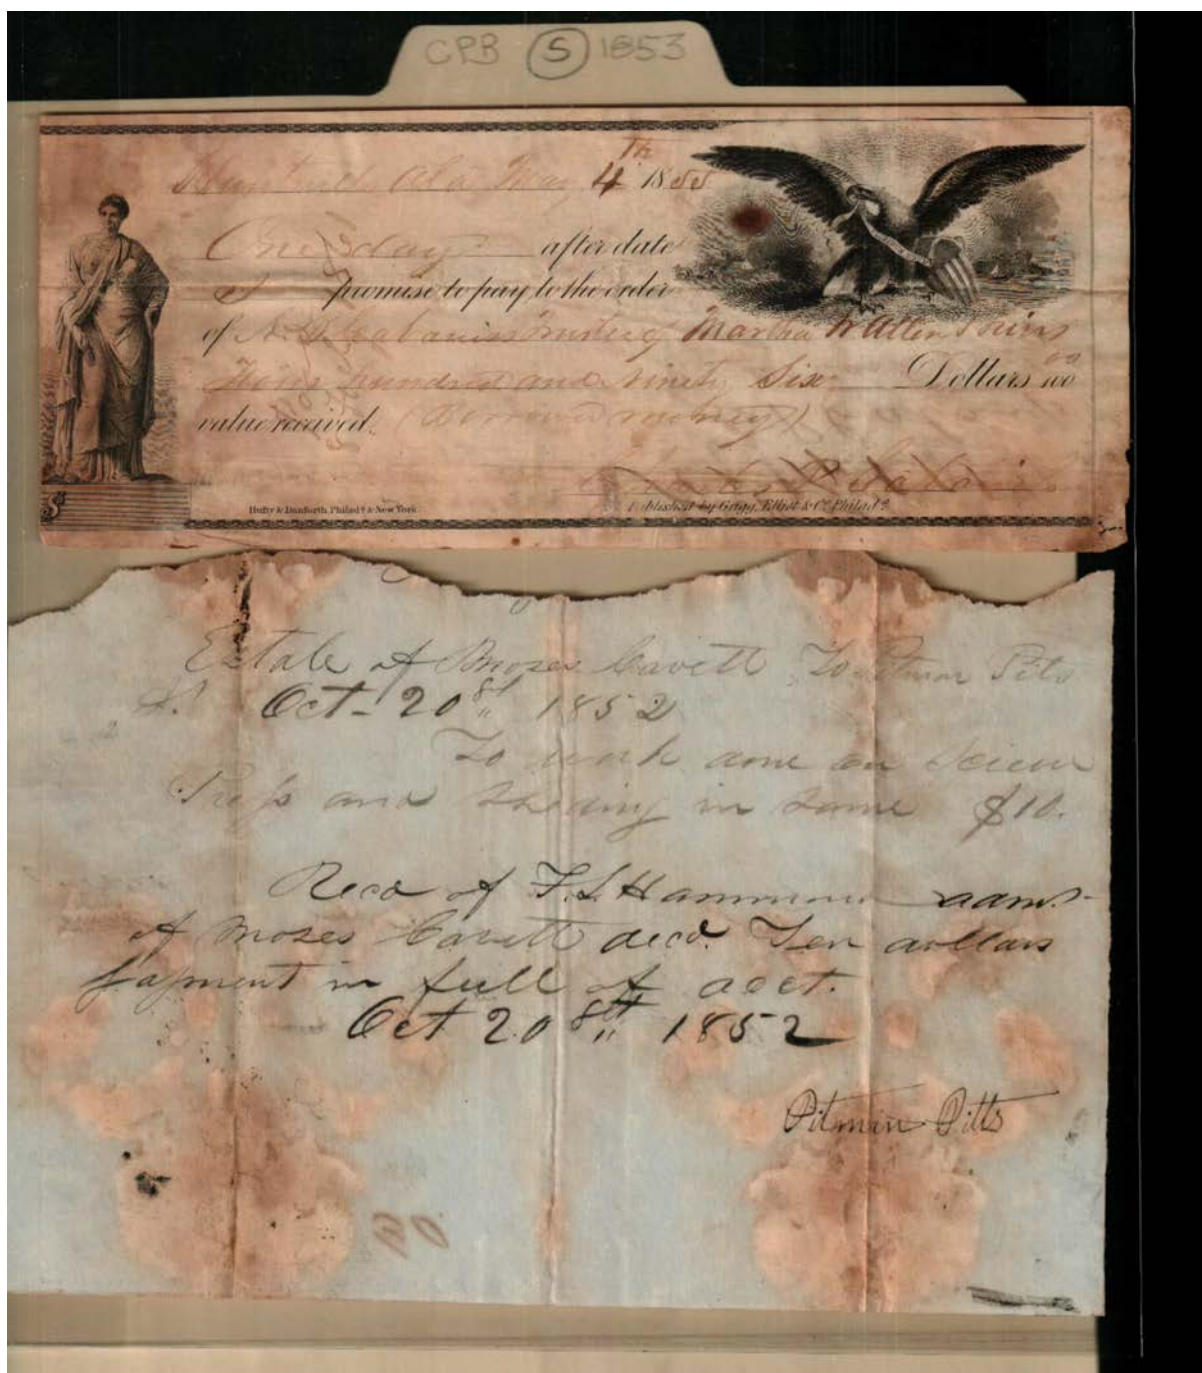 CPB (S) 1853
Ala May 4th 1855
One day after date
I promise to pay to the order
of Martha W Allen
hundred and Ninety Six Dollars 00/100
value received. (Borrowed money)
$
Hufty & Danforth, Philad.ª & New York
Published by Grigg, Elliot & Cº Philad.ª
Estate of Moses Cavett To Pitman Pits
Oct - 20 8th 1852
To work done on Screw
Press and in same $10.
Recd of F. L. Hammond adms.
of Moses Cavett decd. Ten dollars
payment in full of acct.
Oct 20 8th 1852
Pitman Pitts